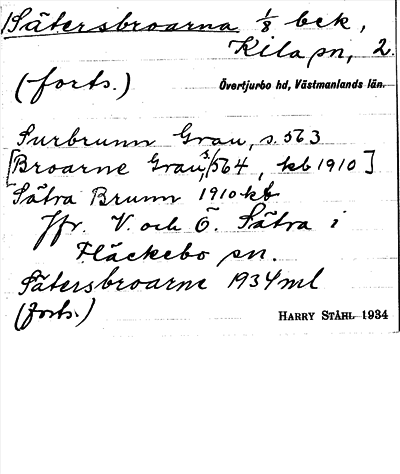 Sätersbroarna 1/8 bek,
Kila sn, 2.
(forts.)
Övertjurbo hd, Västmanlands län.
Surbrunn Grau, s. 563
[Broarne Grau, s/564, kb 1910]
Sätra Brunn 1910 kb
Jfr. V. och Ö. Sätra i
Fläckebo sn.
Sätersbroarne 1934 ml
(forts.)
HARRY STÅHL 1934